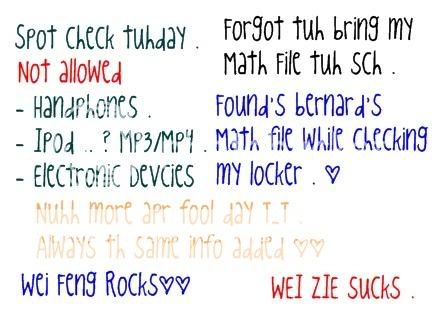 Spot Check tuhday .
Not allowed
- Handphones .
- Ipod .. ? MP3/MP4 .
- Electronic Devcies
Forgot tuh bring my
Math File tuh sch .
Found's bernard's
Math file while checking
my locker . ♡
Nuhh more apr fool day T_T .
Always th same info added ♡♡
Wei Feng Rocks♡♡
WEI ZIE SUCKS .